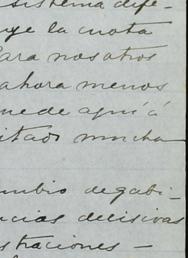 sistema dife-
uye la cuota
Para nosotros
ahora menos
uede aquí á
itado mucha
mbio de gabi-
ncias decisivas
straciones —